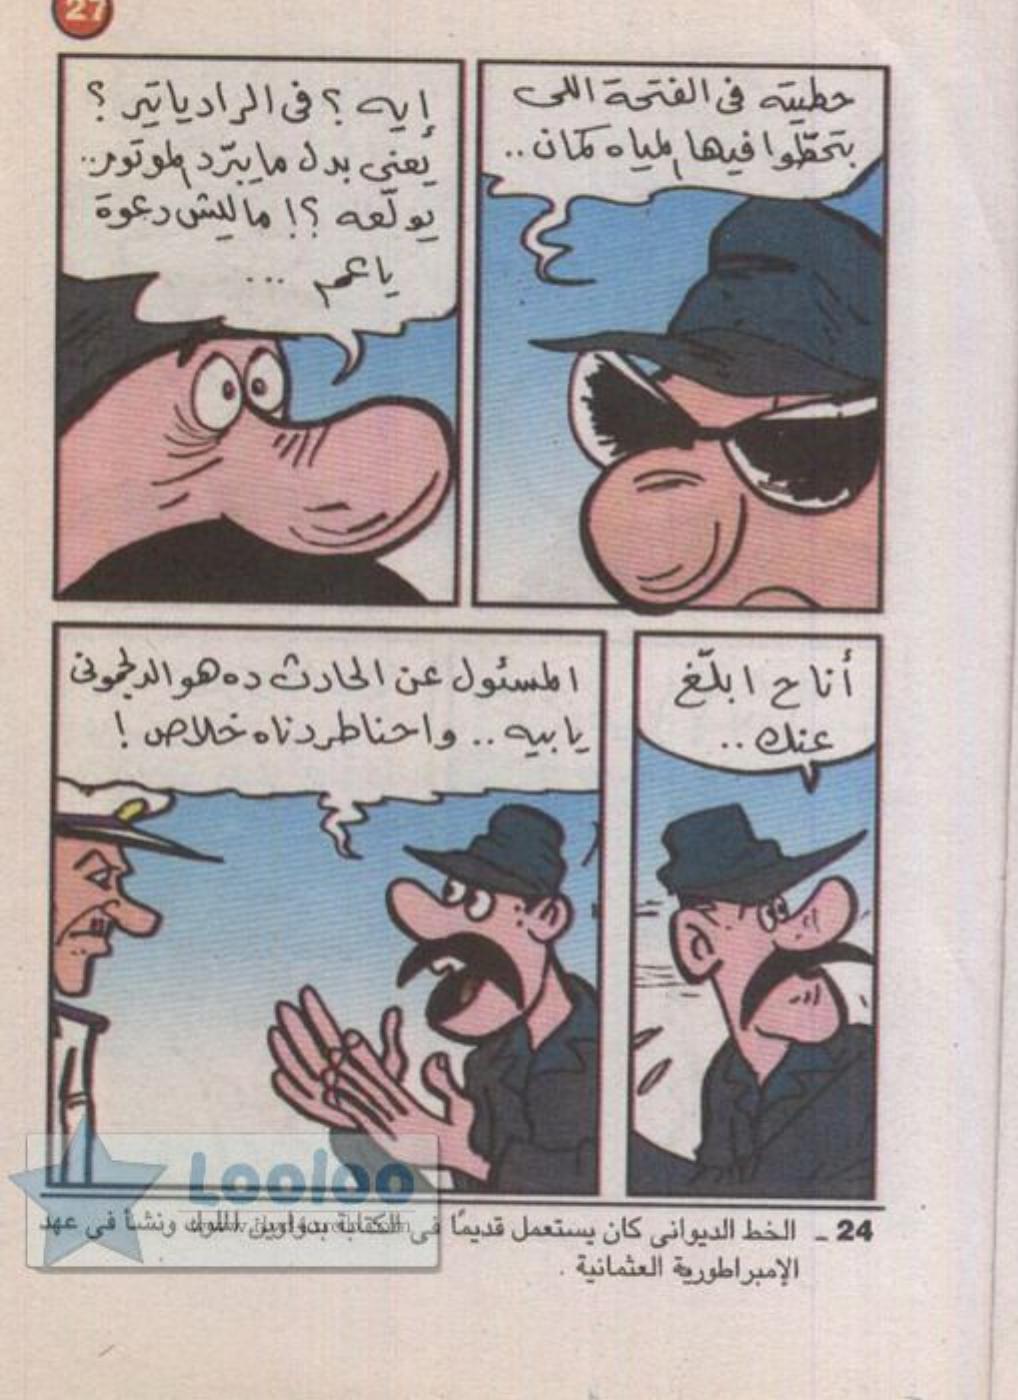 27
حطيته فى الفتحة اللى
بتحطّوا فيها المياه كمان ..
إيه ؟ فى الرادياتير ؟
يعنى بدل ما يبرّد الموتور ..
يولّعه ؟! ماليش دعوة
يا عم ...
أنا ح ابلّغ
عنك ..
المسئول عن الحادث ده هو الدلجمونى
يا بيه .. واحنا طردناه خلاص !
24 ـ الخط الديوانى كان يستعمل قديمًا فى الكتابة بدواوين الملوك ونشأ فى عهد
الإمبراطورية العثمانية .
Looloo